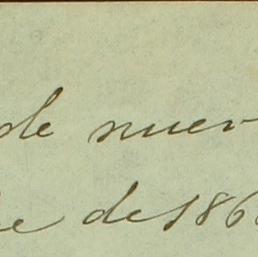 de nuev
re de 186